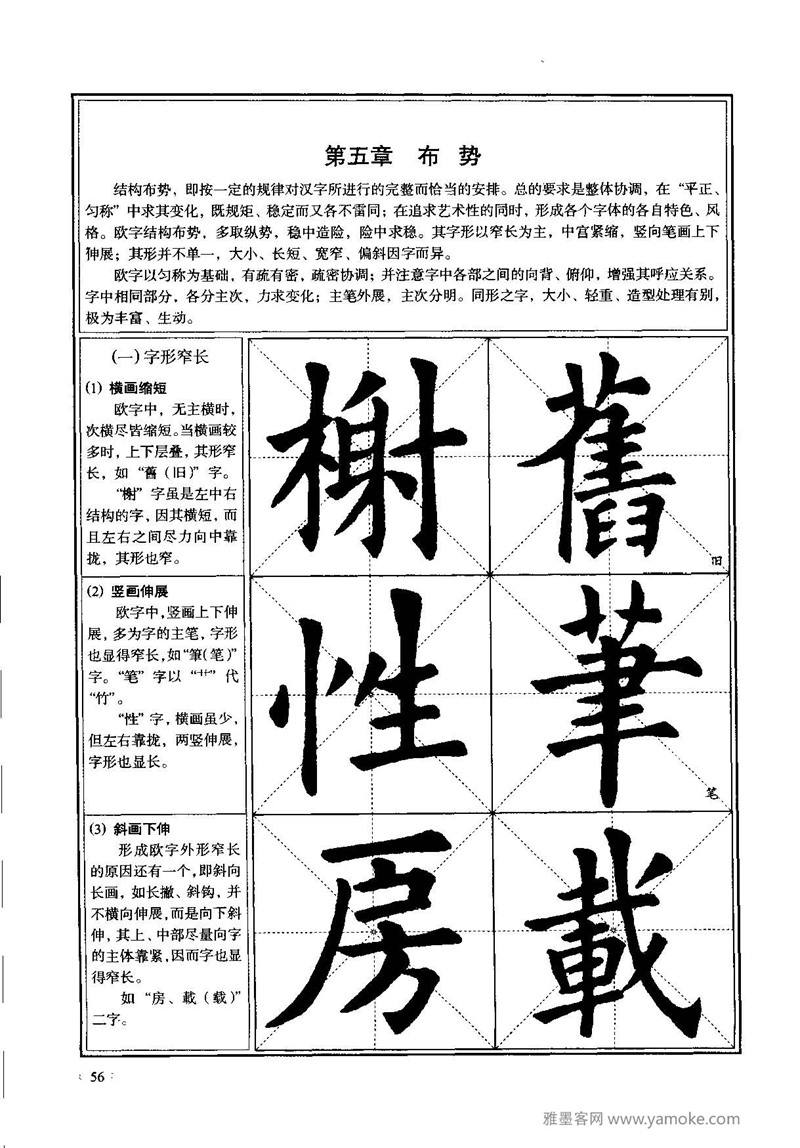 第五章 布 势
结构布势，即按一定的规律对汉字所进行的完整而恰当的安排。总的要求是整体协调，在“平正、
匀称”中求其变化，既规矩、稳定而又各不雷同；在追求艺术性的同时，形成各个字体的各自特色、风
格。欧字结构布势，多取纵势，稳中造险，险中求稳。其字形以窄长为主，中宫紧缩，竖向笔画上下
伸展；其形并不单一，大小、长短、宽窄、偏斜因字而异。
欧字以匀称为基础，有疏有密，疏密协调；并注意字中各部之间的向背、俯仰，增强其呼应关系。
字中相同部分，各分主次，力求变化；主笔外展，主次分明。同形之字，大小、轻重、造型处理有别，
极为丰富、生动。
(一)字形窄长
(1) 横画缩短
欧字中，无主横时，
次横尽皆缩短。当横画较
多时，上下层叠，其形窄
长，如“舊（旧）”字。
“榭”字虽是左中右
结构的字，因其横短，而
且左右之间尽力向中靠
拢，其形也窄。
榭 舊
旧
(2) 竖画伸展
欧字中，竖画上下伸
展，多为字的主笔，字形
也显得窄长，如“筆(笔)”
字。“笔”字以“艹”代
“竹”。
“性”字，横画虽少，
但左右靠拢，两竖伸展，
字形也显长。
性 筆
笔
(3) 斜画下伸
形成欧字外形窄长
的原因还有一个，即斜向
长画，如长撇、斜钩，并
不横向伸展，而是向下斜
伸，其上、中部尽量向字
的主体靠紧，因而字也显
得窄长。
如“房、載（载）”
二字。
房 載
56
雅墨客网 www.yamoke.com